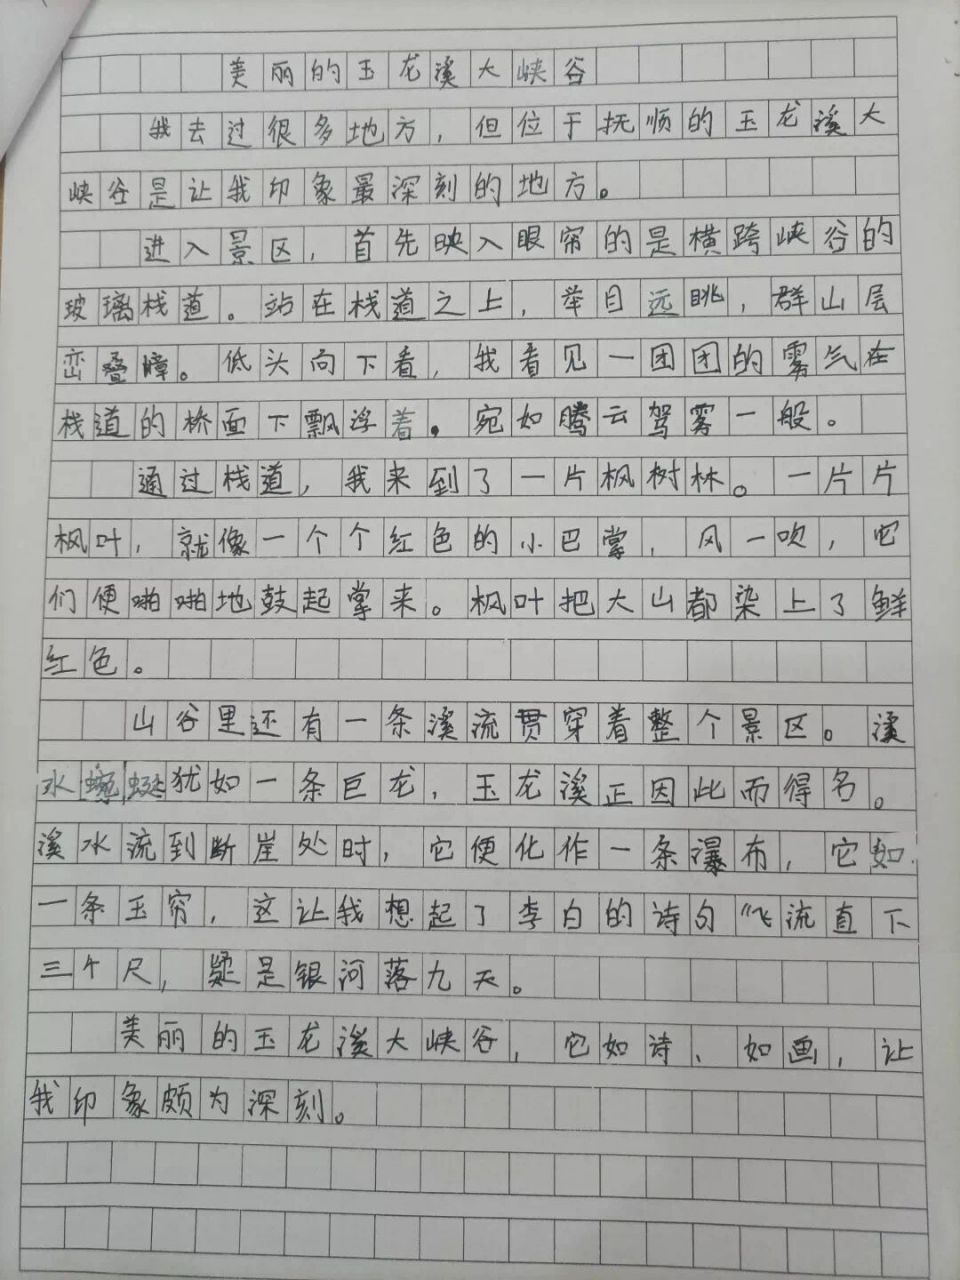 美丽的玉龙溪大峡谷
我去过很多地方，但位于抚顺的玉龙溪大
峡谷是让我印象最深刻的地方。
进入景区，首先映入眼帘的是横跨峡谷的
玻璃栈道。站在栈道之上，举目远眺，群山层
峦叠嶂。低头向下看，我看见一团团的雾气在
栈道的桥面下飘浮着。宛如腾云驾雾一般。
通过栈道，我来到了一片枫树林。一片片
枫叶，就像一个个红色的小巴掌，风一吹，它
们便啪啪地鼓起掌来。枫叶把大山都染上了鲜
红色。
山谷里还有一条溪流贯穿着整个景区。溪
水蜿蜒犹如一条巨龙，玉龙溪正因此而得名。
溪水流到断崖处时，它便化作一条瀑布，它如
一条玉帘，这让我想起了李白的诗句“飞流直下
三千尺，疑是银河落九天。
美丽的玉龙溪大峡谷，它如诗、如画，让
我印象颇为深刻。